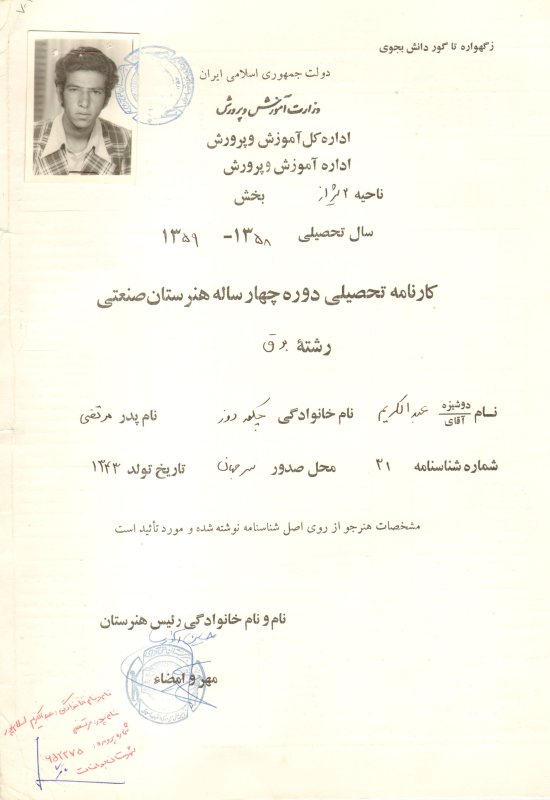 زگهواره تا گور دانش بجوی
دولت جمهوری اسلامی ایران
وزارت آموزش و پرورش
اداره کل آموزش و پرورش
اداره آموزش و پرورش
ناحیه ۲ شیراز بخش
سال تحصیلی ۱۳۵۸- ۱۳۵۹
کارنامه تحصیلی دوره چهار ساله هنرستان صنعتی
رشتهٔ برق
نام دوشیزه آقای عبدالکریم نام خانوادگی چکمه دوز نام پدر مرتضی
شماره شناسنامه ۳۱ محل صدور سیرجان تاریخ تولد ۱۳۴۳
مشخصات هنرجو از روی اصل شناسنامه نوشته شده و مورد تأئید است
نام و نام خانوادگی رئیس هنرستان
مهر و امضاء
نام و نام خانوادگی: عبدالکریم
نام پدر: مرتضی
شماره پرونده: ۶۵۲۲۷۵